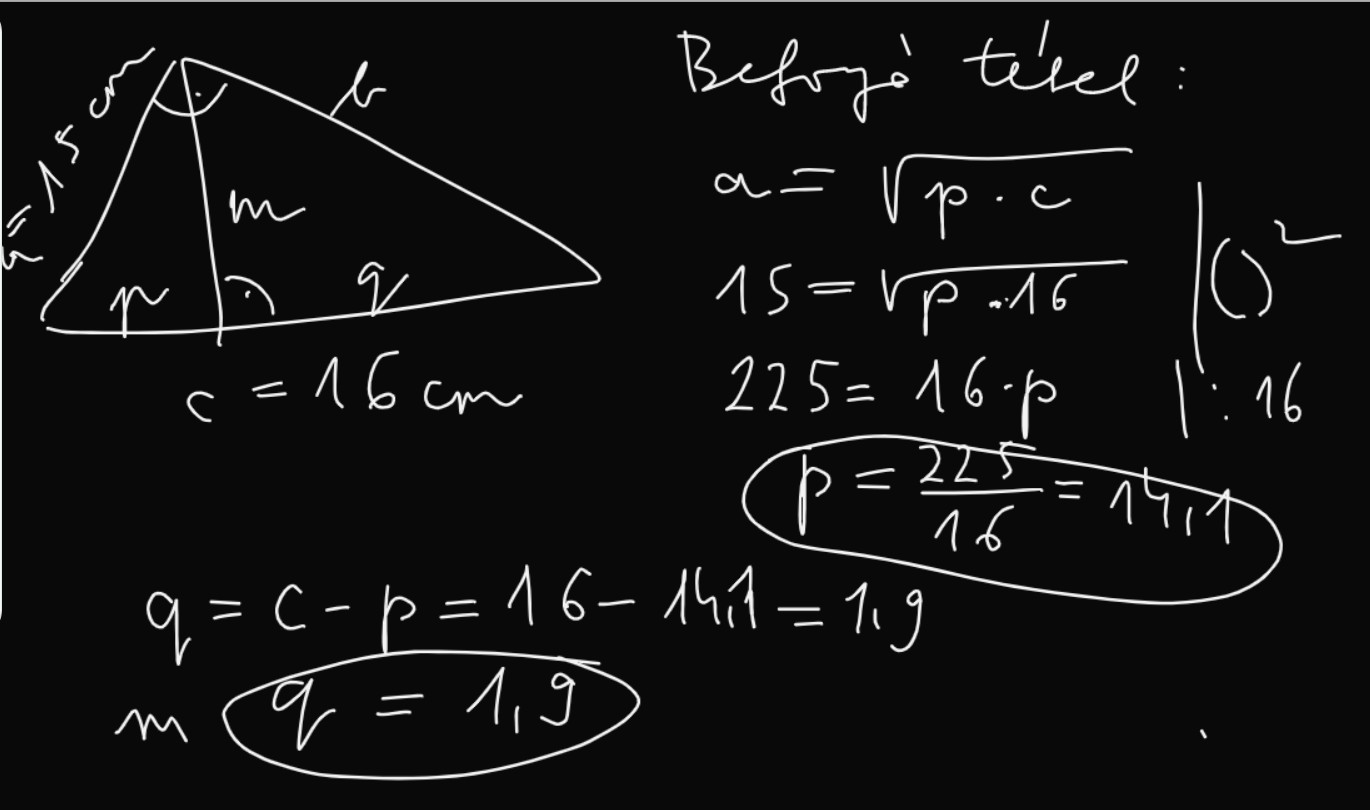 a = 15 cm
b
m
p
q
c = 16 cm
Befogó tétel:
a = √p · c
15 = √p · 16 | ()²
225 = 16 · p | : 16
p = 225/16 = 14,1
q = c - p = 16 - 14,1 = 1,9
m
q = 1,9